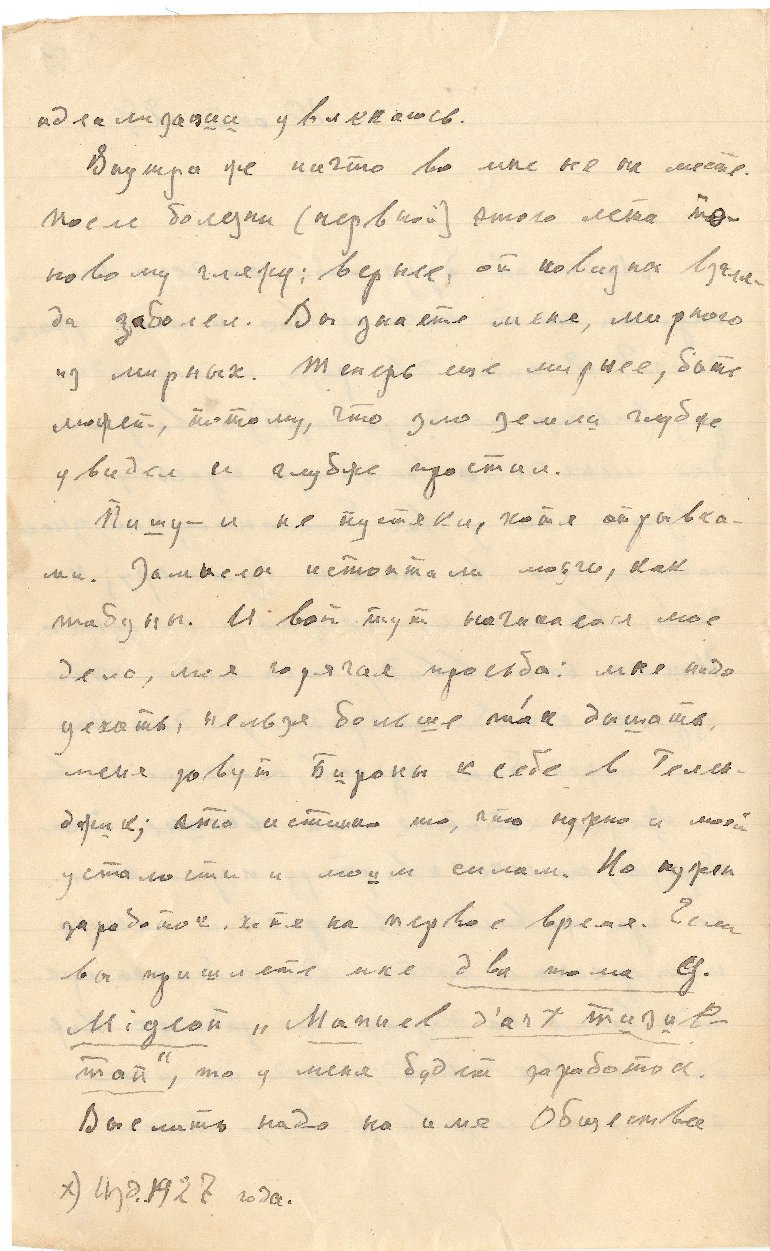 идеализации увлекаюсь.
Внутри же ничто во мне не на месте.
После болезни (нервной) этого лета по-
новому гляжу; вернее, от новизны взгля-
да заболел. Вы знаете меня, мирного
из мирных. Теперь еще мирнее, быть
может, потому, что зло земли глубже
увидел и глубже простил.
Пишу – и не пустяки, хотя отрывка-
ми. Замыслы истоптали мозги, как
табуны. И вот тут начинается мое
дело, моя горячая просьба: мне надо
уехать, нельзя больше та́к дышать,
меня зовут Бироны к себе в Гелен-
джик; это истинно то, что нужно и моей
усталости и моим силам. Но нужен
заработок хотя на первое время. Если
вы пришлете мне два тома G.
Migeon „Manuel d'art musul-
man“, то у меня будет заработок.
Выслать надо на имя Общества
x) Изд. 1927 года.